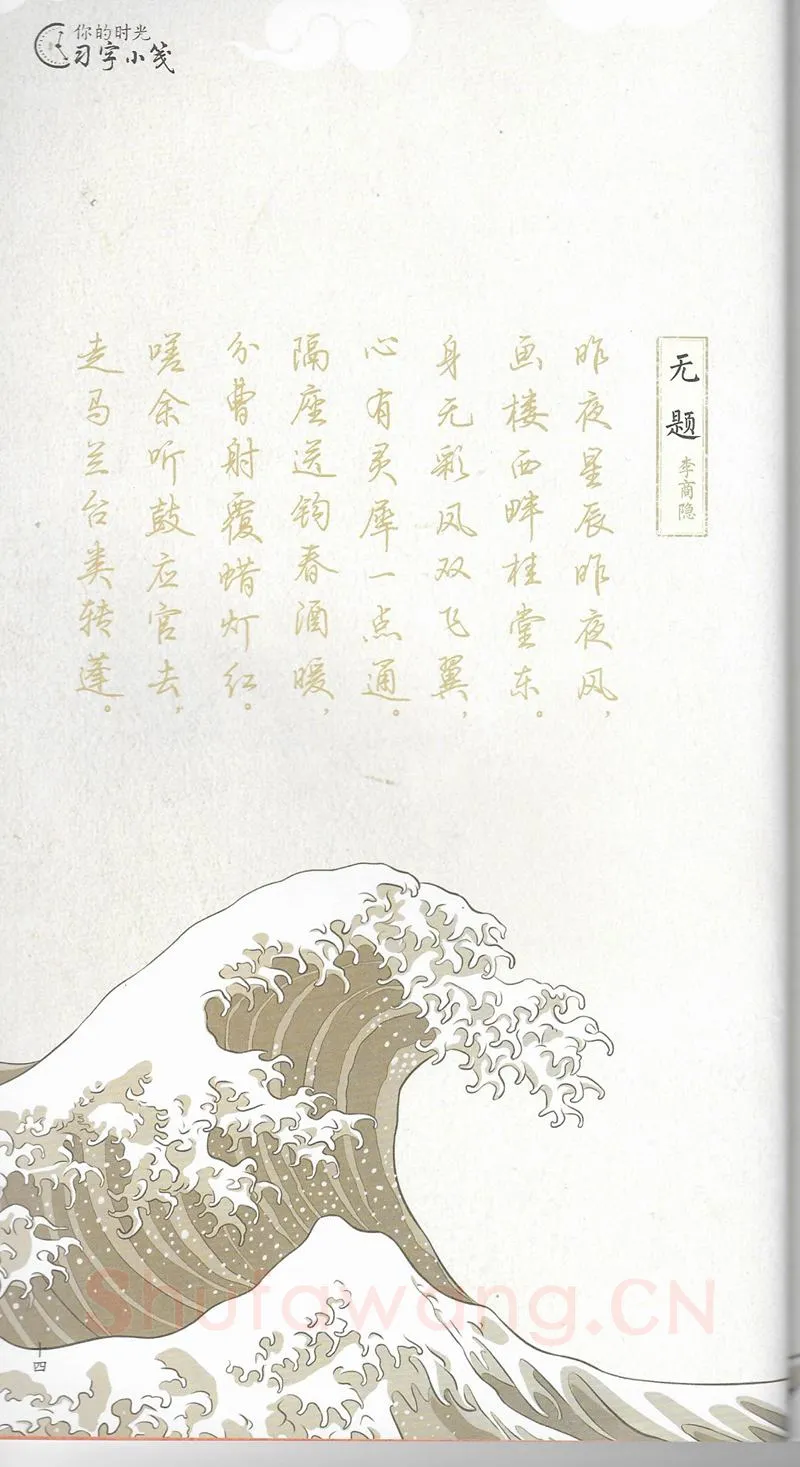 你的时光
习字小笺
无题
李商隐
昨夜星辰昨夜风，
画楼西畔桂堂东。
身无彩凤双飞翼，
心有灵犀一点通。
隔座送钩春酒暖，
分曹射覆蜡灯红。
嗟余听鼓应官去，
走马兰台类转蓬。
十四
Shufawang.CN